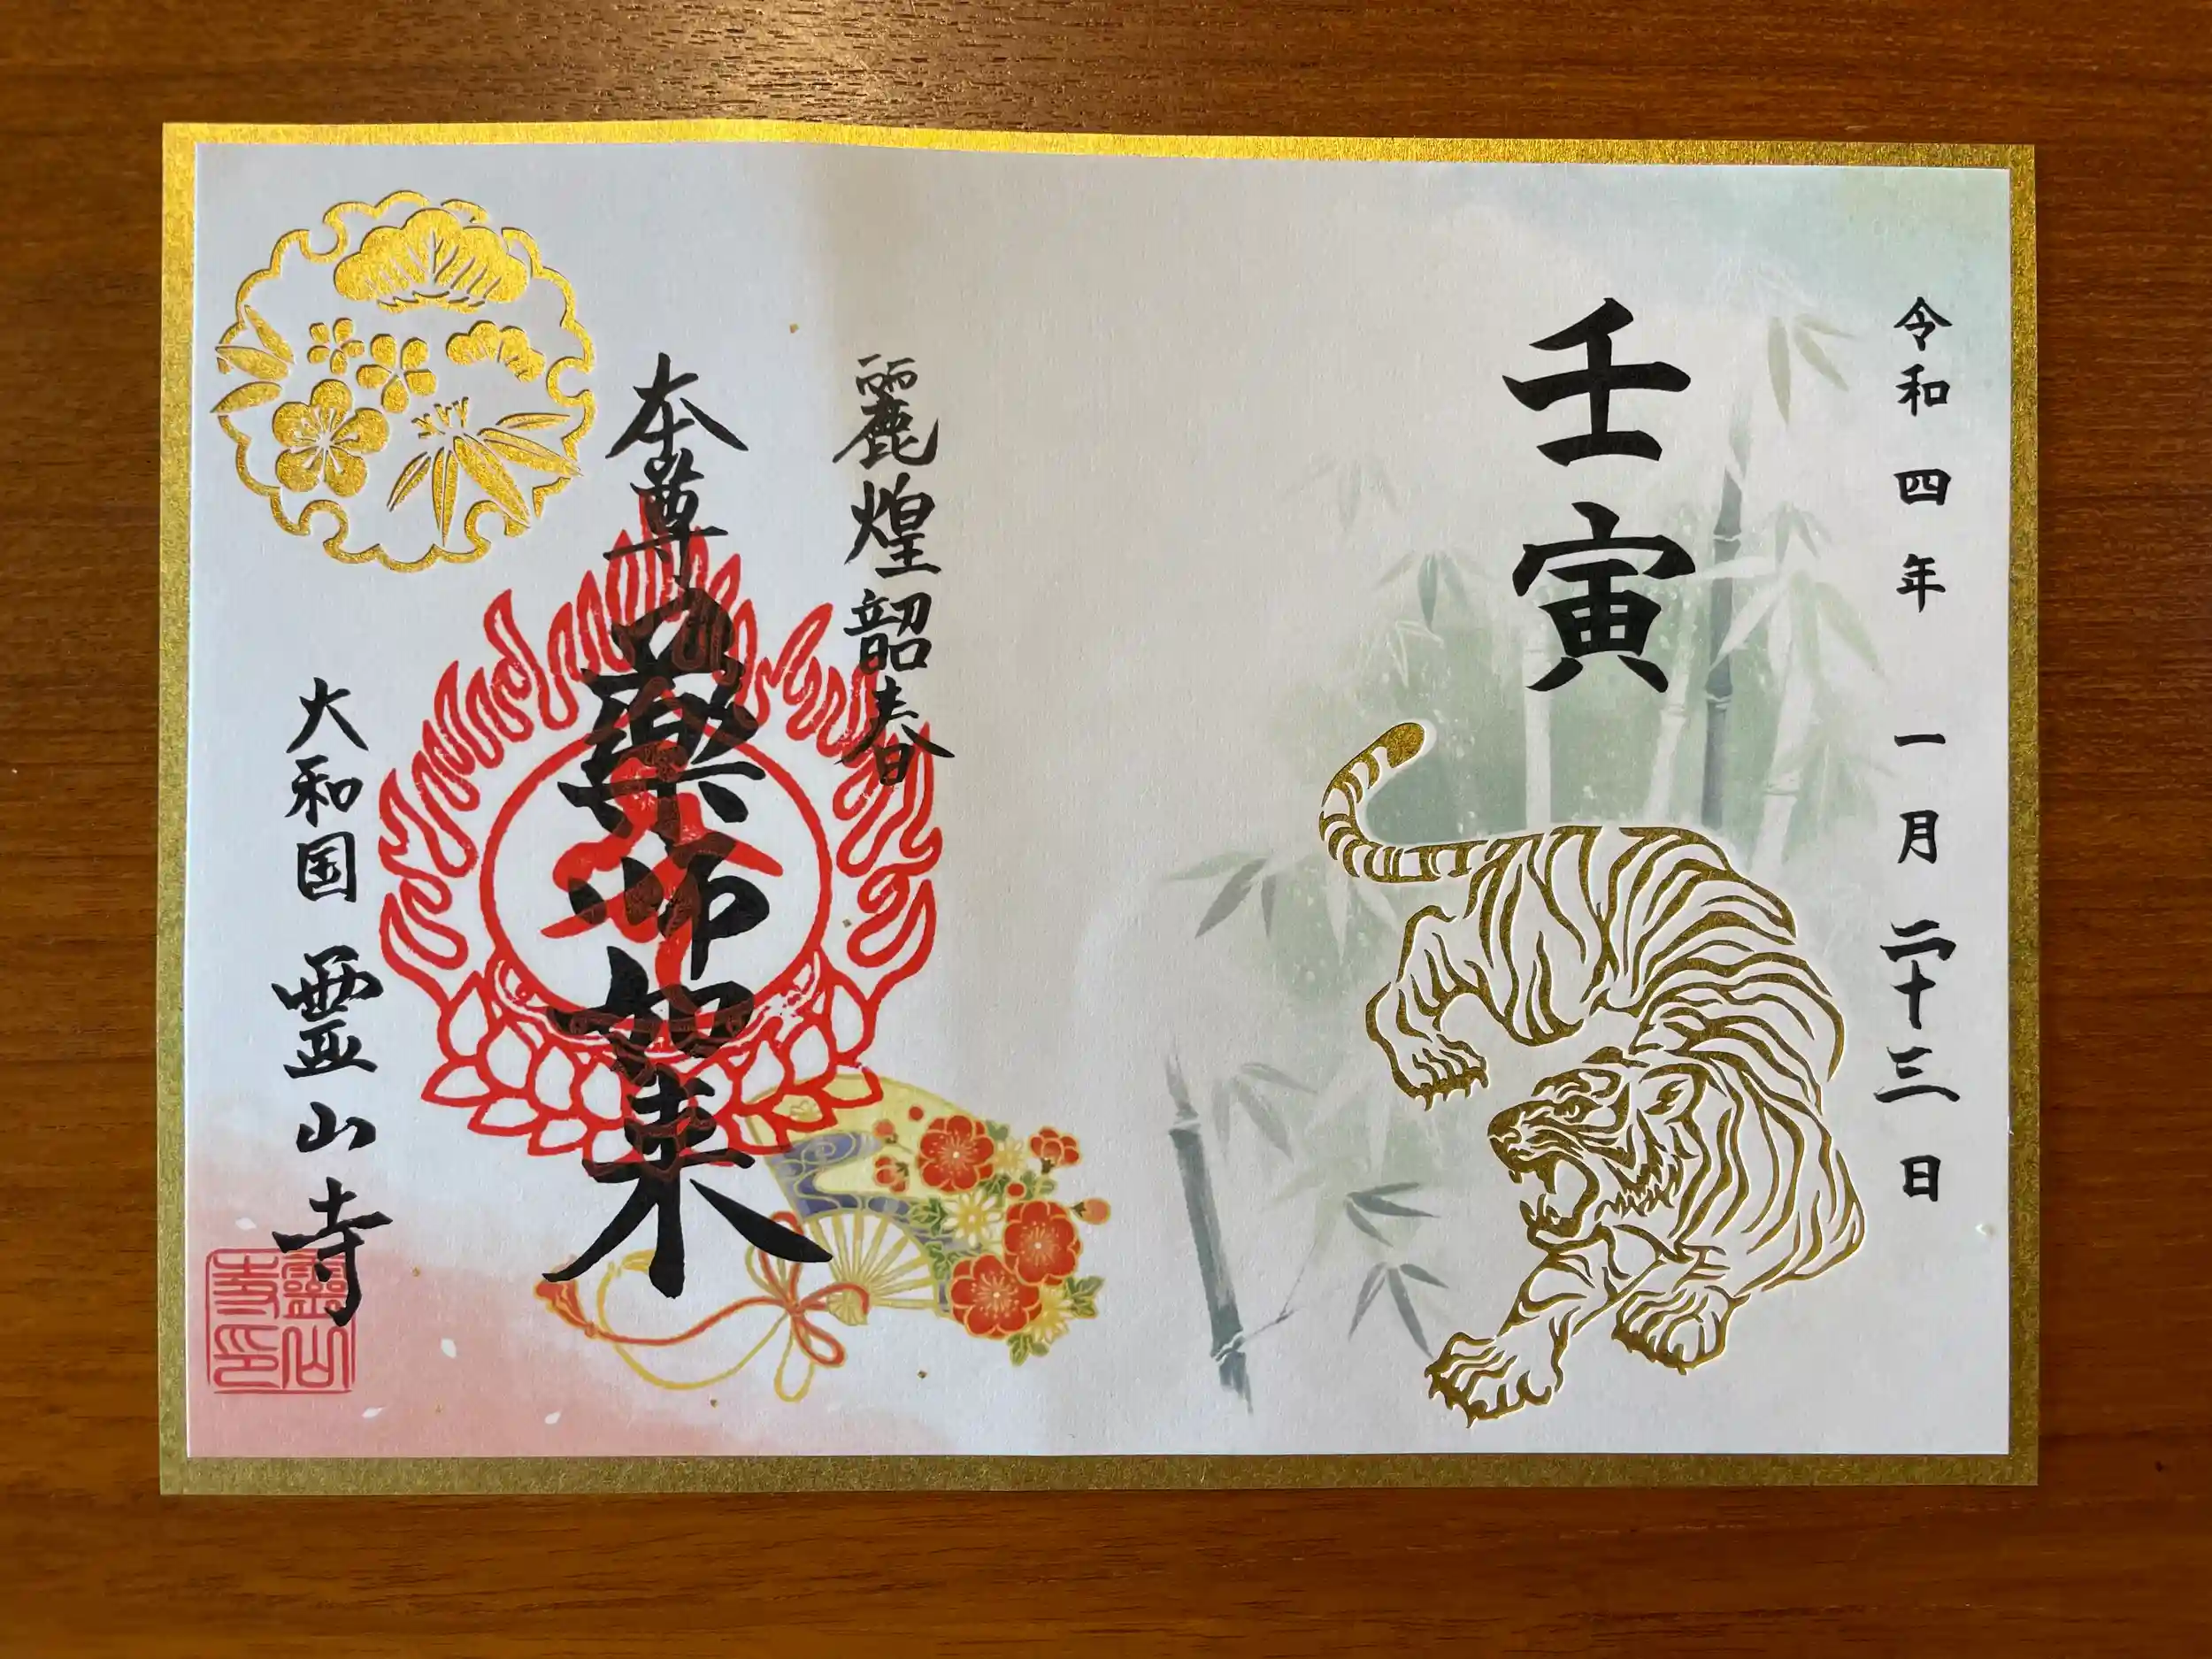 令和四年 一月二十三日
壬寅
麗煌韶春
本尊 薬師如来
大和国 霊山寺
靈山寺印